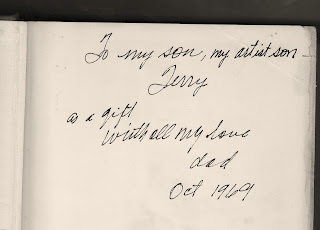 To my son, my artist son
Jerry
as a gift
with all my love
dad
Oct 1969